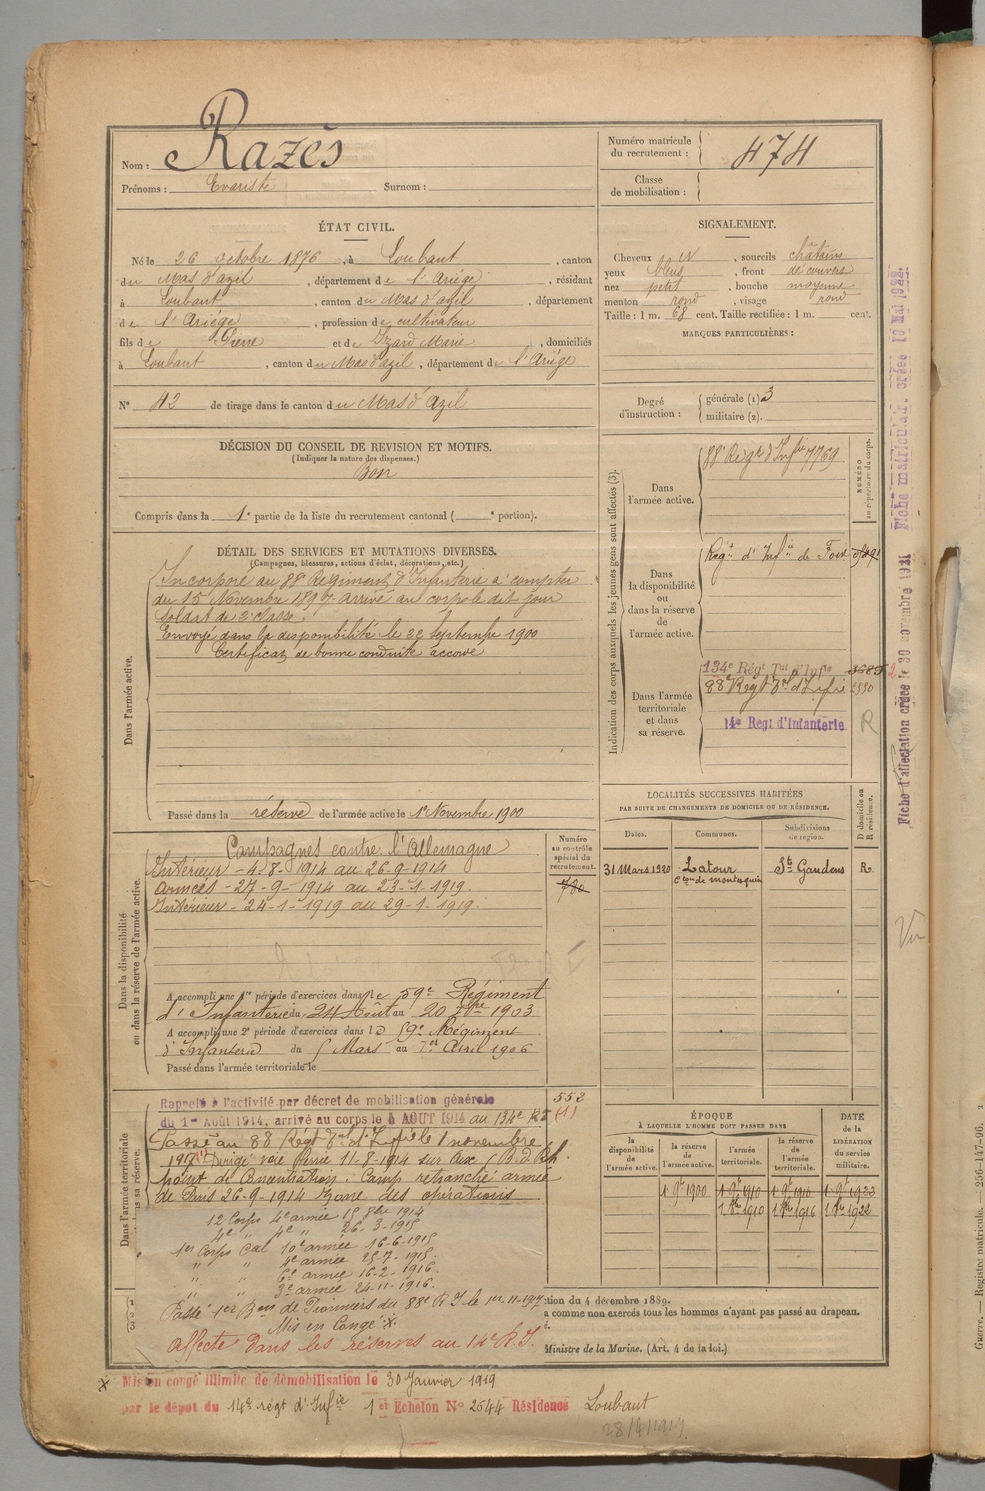 Nom : Razès
Prénoms : Evariste Surnom :
Numéro matricule
du recrutement : 474
Classe
de mobilisation :
ÉTAT CIVIL.
Né le 26 octobre 1876, à Loubaut, canton
du Mas d'azil, département de l'Ariège, résidant
à Loubaut, canton du Mas d'azil, département
de l'Ariège, profession de cultivateur
fils de Pierre et de Izard Marie, domiciliés
à Loubaut, canton du Mas d'azil, département de l'Ariége
N° 42 de tirage dans le canton du Mas d'Azil
SIGNALEMENT.
Cheveux N, sourcils châtains
yeux bleus, front découvert
nez petit, bouche moyenne
menton rond, visage rond
Taille : 1 m. 68 cent. Taille rectifiée : 1 m. cent.
MARQUES PARTICULIÈRES :
Degré
d'instruction : générale (1) 3
militaire (2).
DÉCISION DU CONSEIL DE REVISION ET MOTIFS.
(Indiquer la nature des dispenses.)
Bon
Compris dans la 1e partie de la liste du recrutement cantonal ( e portion).
DÉTAIL DES SERVICES ET MUTATIONS DIVERSES.
(Campagnes, blessures, actions d'éclat, décorations, etc.)
Dans l'armée active.
Incorporé au 88e Régiment d'Infanterie à compter
du 15 Novembre 1897. Arrivé au corps le dit jour
soldat de 2e classe.
Envoyé dans la disponibilité le 20 Septembre 1900
Certificat de bonne conduite accordé
Passé dans la réserve de l'armée active le 1er Novembre 1900
Indication des corps auxquels les jeunes gens sont affectés (3).
NUMÉRO
au répertoire du corps.
Dans
l'armée active.
88e Régt d'Infie 7769
Dans
la disponibilité
ou
dans la réserve
de
l'armée active.
Régt d'Infie de Foix
Dans l'armée
territoriale
et dans
sa réserve.
134e Régt Tal d'Infie
88e Régt Tal d'Infie
14e Regt d'Infanterie
R
LOCALITÉS SUCCESSIVES HABITÉES
PAR SUITE DE CHANGEMENTS DE DOMICILE OU DE RÉSIDENCE.
Dates. Communes. Subdivisions
de région.
D domicile ou
R résidence.
31 Mars 1920 Latour St Gaudens R
Con de montesquieu
Dans la disponibilité
ou dans la réserve de l'armée active.
Numéro
au contrôle
spécial du
recrutement.
780
Campagnes contre l'Allemagne
Intérieur - 4-8-1914 au 26-9-1914
armées - 27-9-1914 au 23-1-1919.
Intérieur - 24-1-1919 au 29-1-1919.
A accompli une 1re période d'exercices dans le 59e Régiment
d'Infanterie du 24 Août au 20 7bre 1903
A accompli une 2e période d'exercices dans le 59e Régiment
d'Infanterie du 5 Mars au 1er Avril 1906
Passé dans l'armée territoriale le
Dans l'armée territoriale
et dans sa réserve.
552
(1)
Rappelé à l'activité par décret de mobilisation générale
du 1er Août 1914, arrivé au corps le 4 AOUT 1914 au 134e RT
Passé au 88 Régt Tal d'Infie le 1 novembre
1917 (1) Dirigé voie ferrée 11-8-1914 sur
point de Concentration. Camp retranché armée
de Paris 26-9-1914 zone des opérations
12 Corps 4e armée 15 8bre 1914
4e " 4e " 26-3-1915
1er Corps Cal 10e armée 16-6-1915
" " 4e armée 25-7-1915.
" " 6e armée 16-2-1916.
" " 3e armée 24-11-1916.
Passé 1er Bon de Pionniers du 88e R I le 1er-11-1917
Mis en Congé X.
Affecté dans les réserves au 14e R. I.
ÉPOQUE
À LAQUELLE L'HOMME DOIT PASSER DANS
la
disponibilité
de
l'armée active.
la réserve
de
l'armée active.
l'armée
territoriale.
la réserve
de
l'armée
territoriale.
DATE
de la
LIBÉRATION
du service
militaire.
1 9bre 1900 1 9bre 1910 1 9bre 1916 1 9bre 1922
1 8bre 1910 1 8bre 1916 1 8bre 1922
tion du 4 décembre 1889.
a comme non exercés tous les hommes n'ayant pas passé au drapeau.
Ministre de la Marine. (Art. 4 de la loi.)
X Mis en congé illimité de démobilisation le 30 Janvier 1919
par le dépôt du 14e régt d'Infie 1er Echelon N° 2644 Résidence Loubaut
28/4/1919
Fiche d'affectation créée le 30 novembre 1921 Fiche matriculaire créée 10 Mai 1922.
Vu
Guerre. Registre matricule. — 256-147-96.